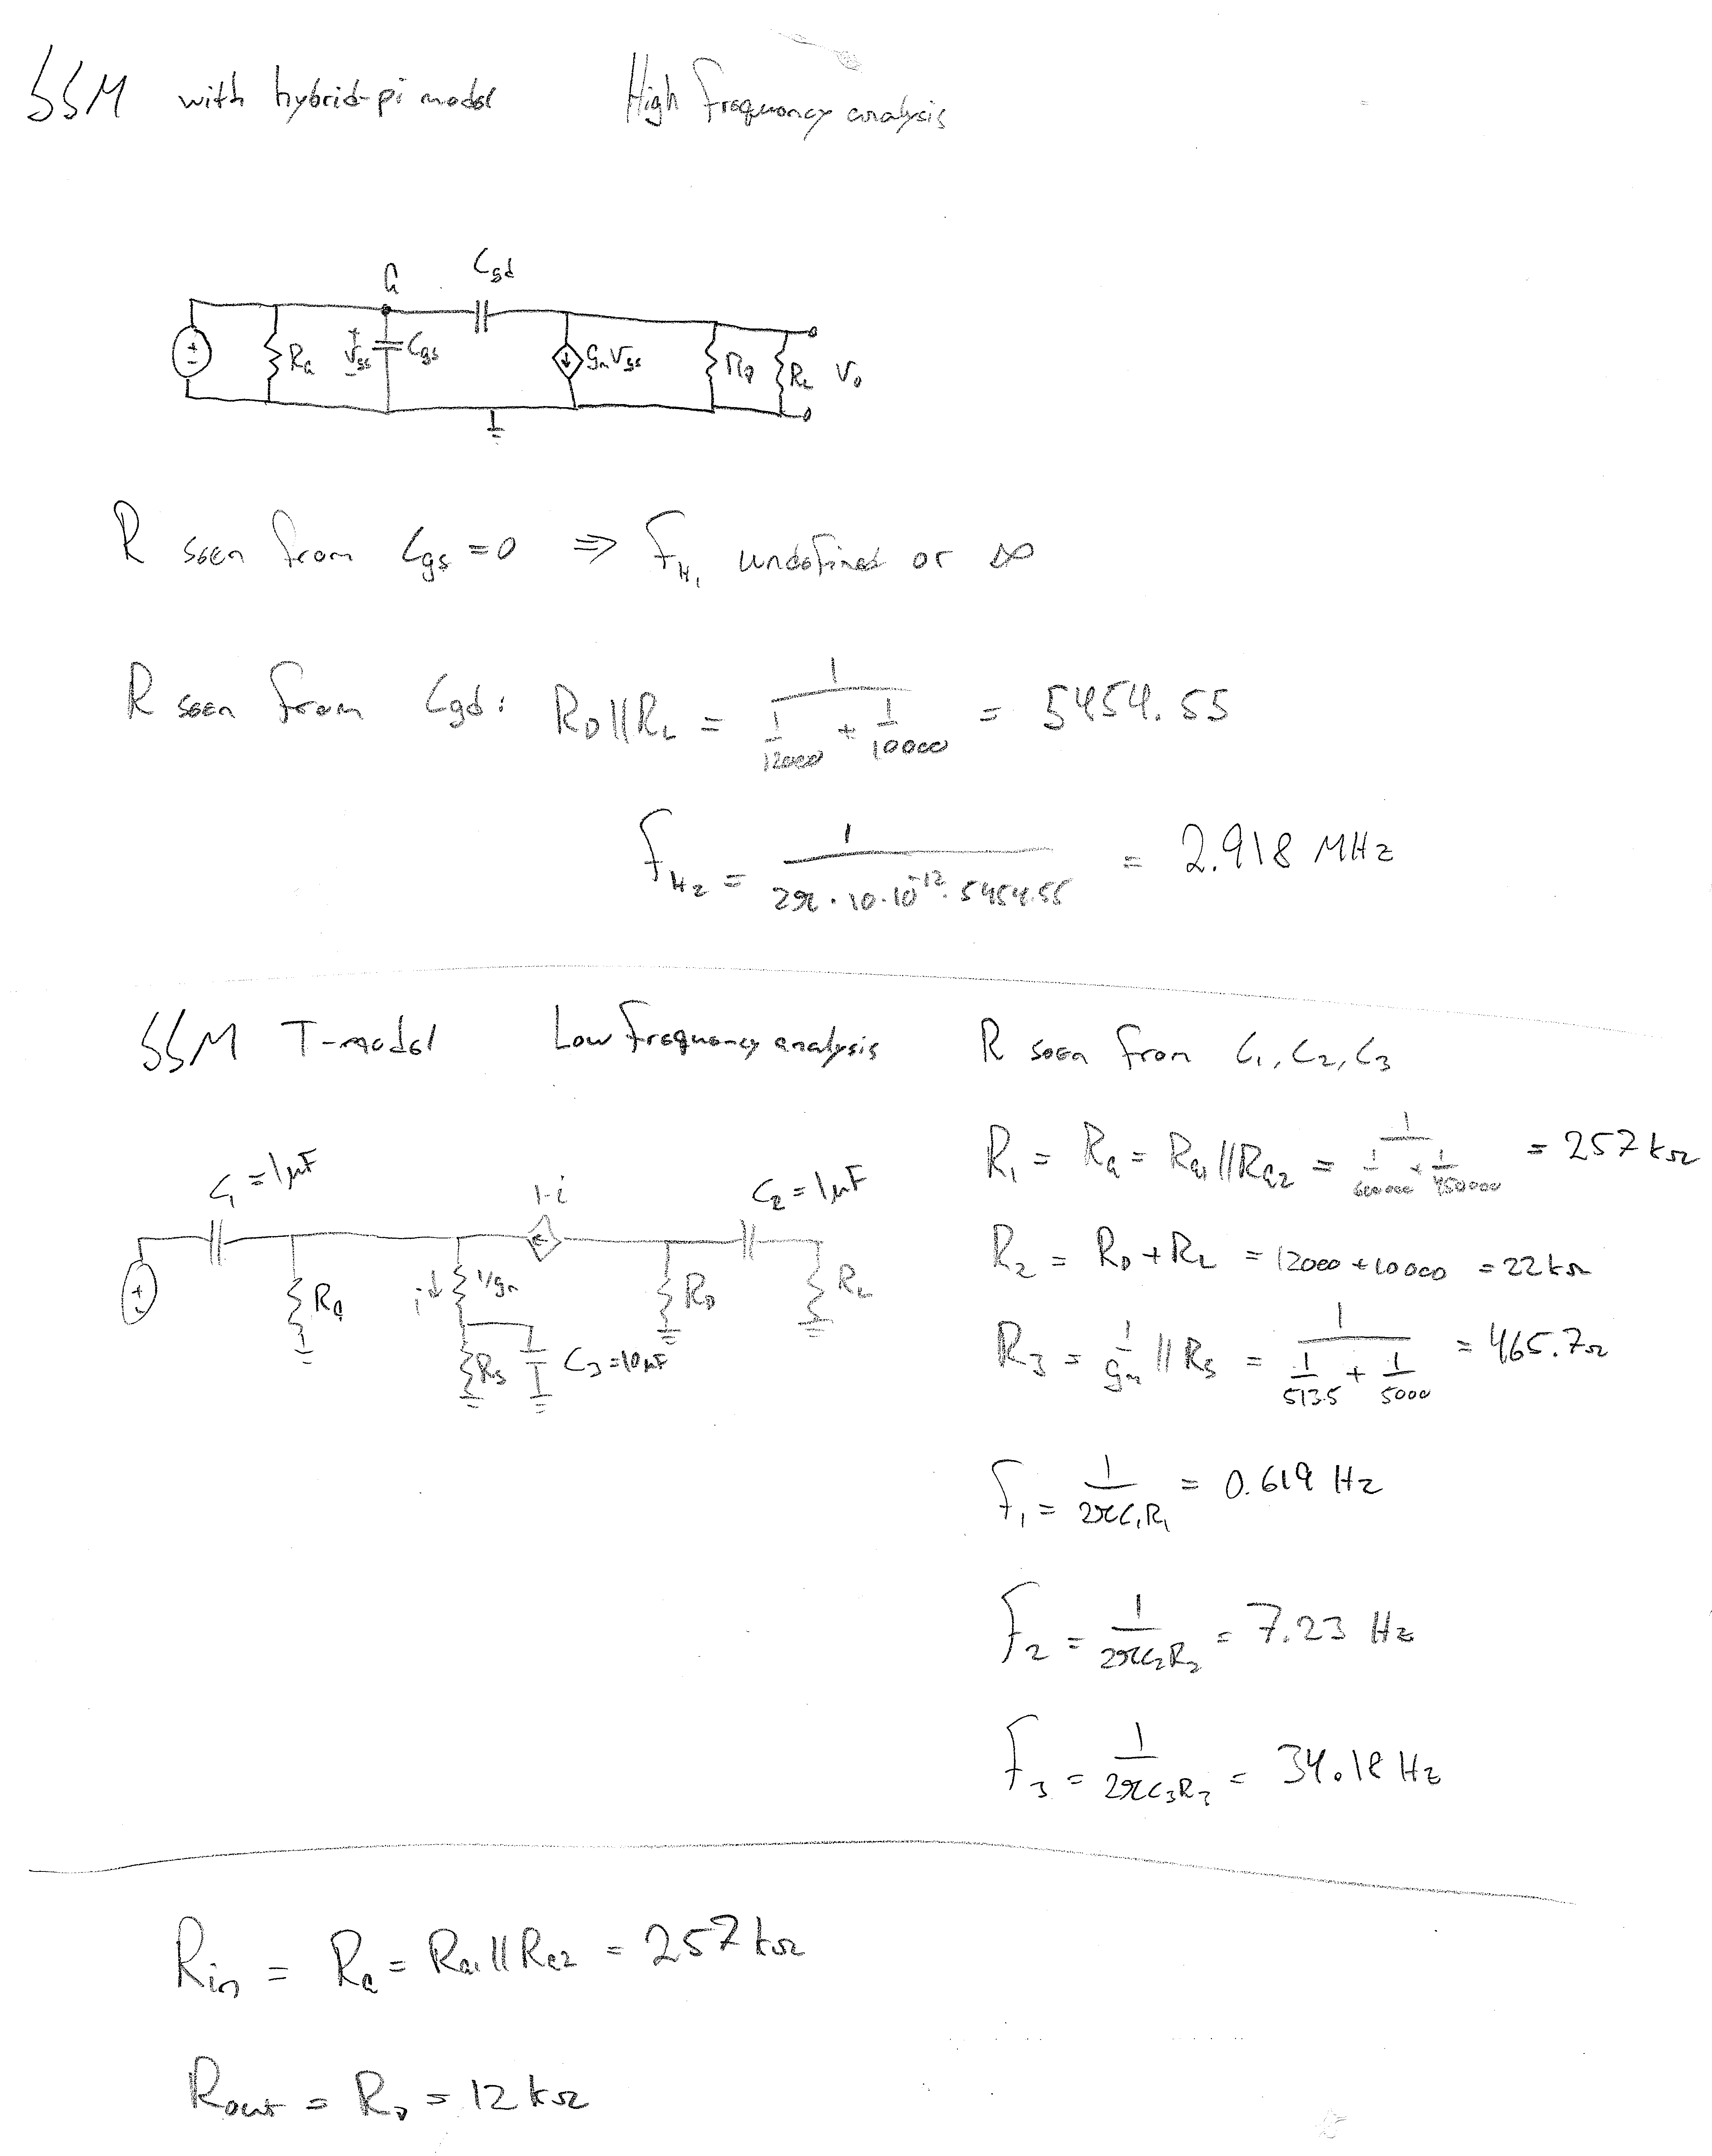 SSM with hybrid-pi model High frequency analysis
G Cgd
+
-
RG + Vgs - Cgs gmVgs RD RL Vo
R seen from Cgs = 0 ⇒ fH1 undefined or ∞
R seen from Cgd: RD||RL = 1 / (1/12000 + 1/10000) = 5454.55
fH2 = 1 / (2π · 10 · 10^-12 · 5454.55) = 2.918 MHz
SSM T-model Low frequency analysis
C1 = 1μF 1·i C2 = 1μF
+
-
RG i 1/gm RD RL
RS C3 = 10μF
R seen from C1, C2, C3
R1 = RG = RG1||RG2 = 1 / (1/600000 + 1/450000) = 257 kΩ
R2 = RD + RL = 12000 + 10000 = 22 kΩ
R3 = 1/gm || RS = 1 / (1/513.5 + 1/5000) = 465.7 Ω
f1 = 1 / (2πC1R1) = 0.619 Hz
f2 = 1 / (2πC2R2) = 7.23 Hz
f3 = 1 / (2πC3R3) = 34.18 Hz
Rin = RG = RG1||RG2 = 257 kΩ
Rout = RD = 12 kΩ